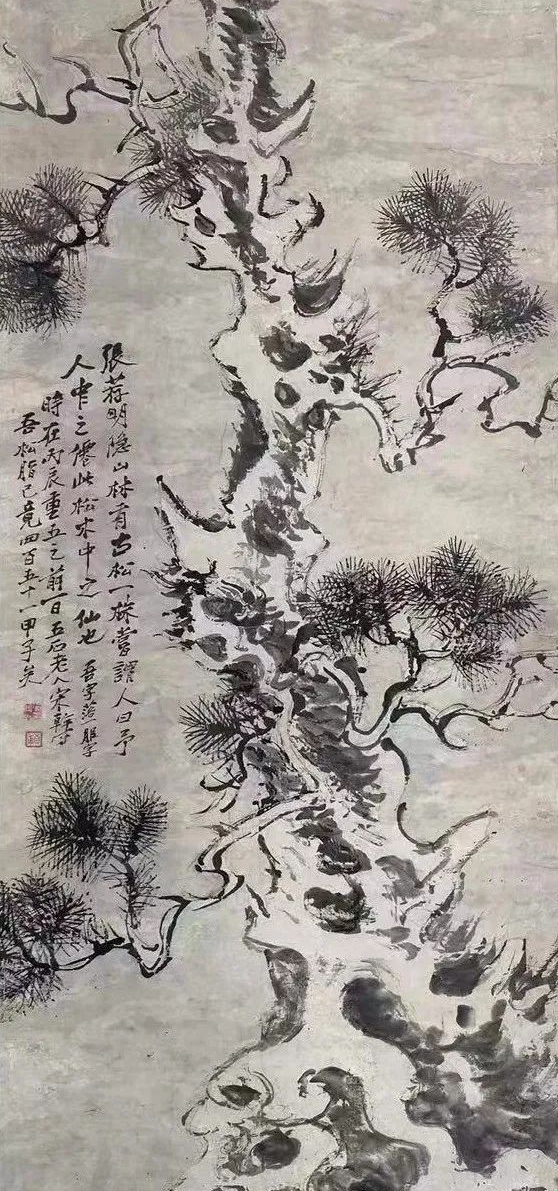 張荐明隐山林有古松一株嘗謂人曰予
人中之僊此松木中之仙也 吾
時在丙辰重五之前一日五石老人宋
吾松脂已竟四百五十一甲子矣